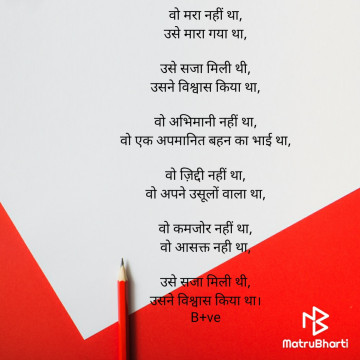 वो मरा नहीं था,
उसे मारा गया था,
उसे सजा मिली थी,
उसने विश्वास किया था,
वो अभिमानी नहीं था,
वो एक अपमानित बहन का भाई था,
वो ज़िद्दी नहीं था,
वो अपने उसूलों वाला था,
वो कमजोर नहीं था,
वो आसक्त नही था,
उसे सज़ा मिली थी,
उसने विश्वास किया था।
B+ve
MatruBharti